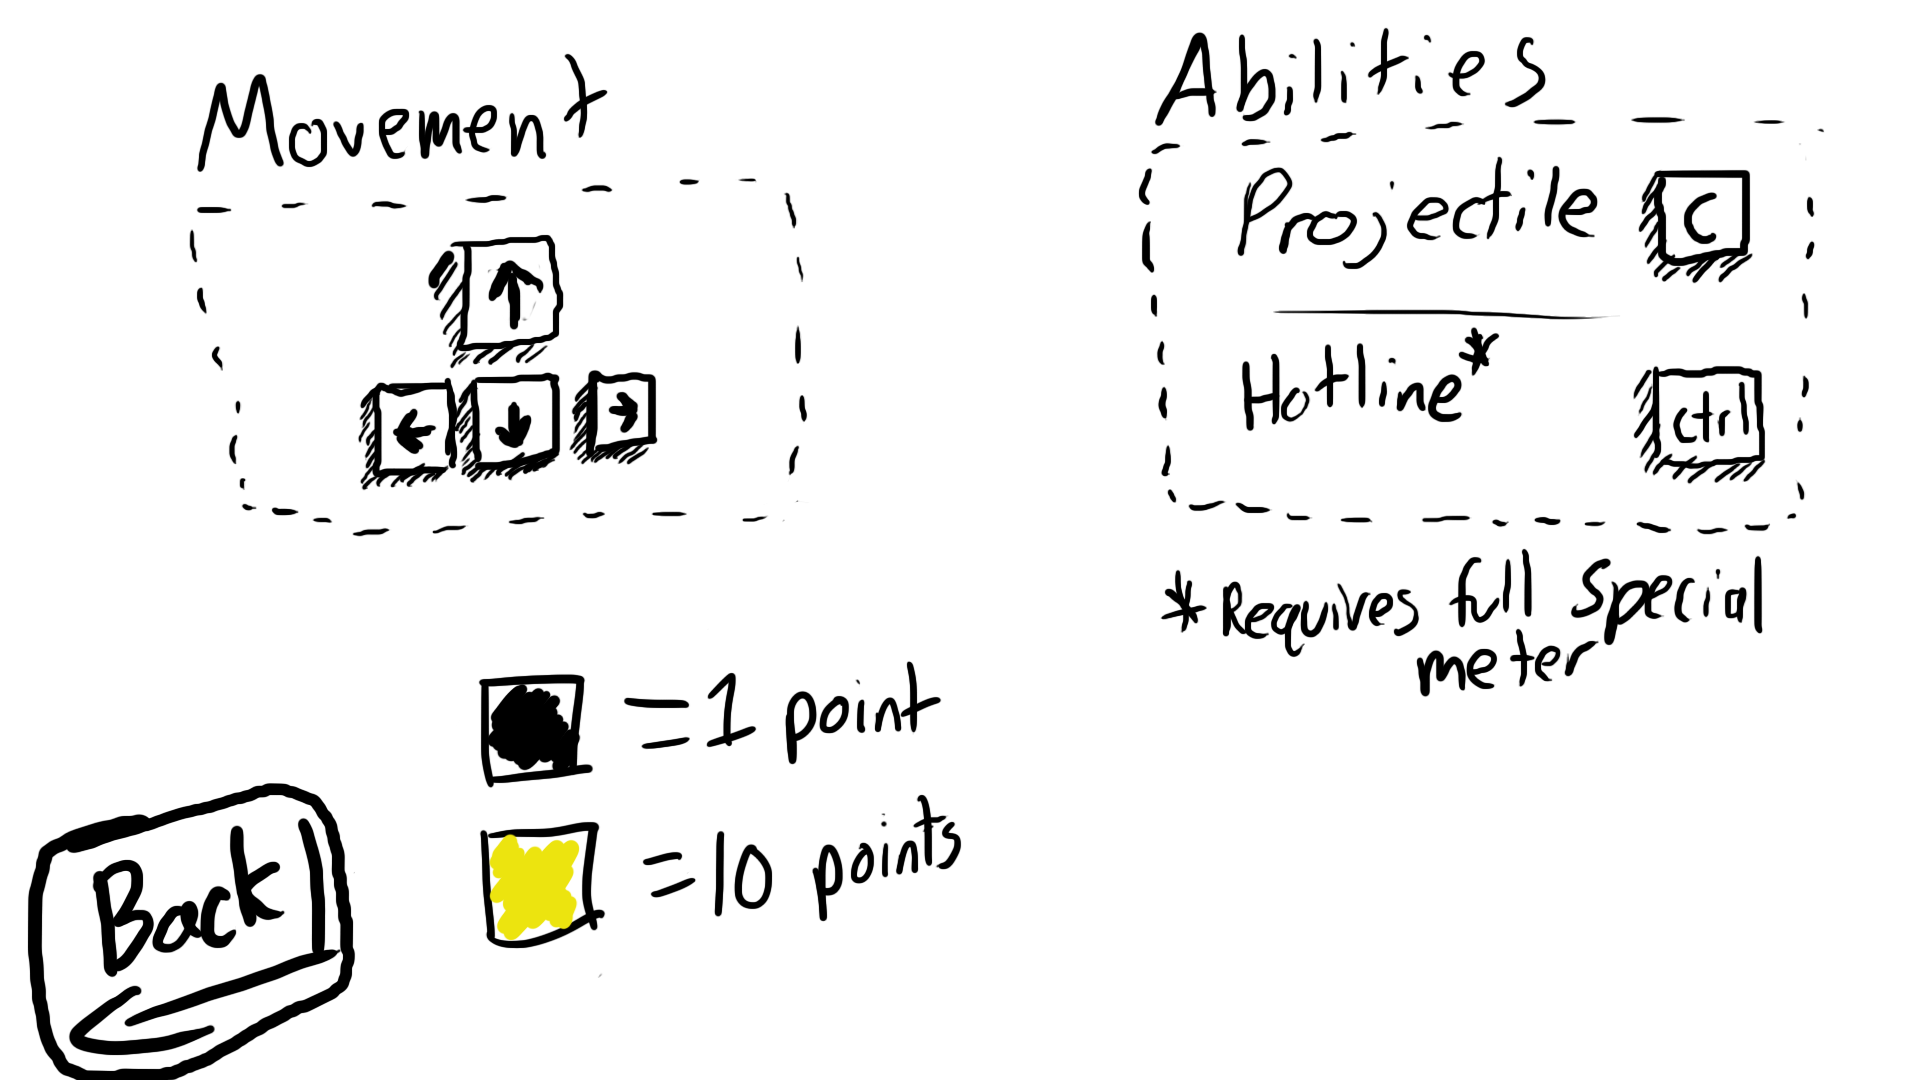 Movement
↑
← ↓ →
Abilities
Projectile C
Hotline* ctrl
*Requires full special
meter
= 1 point
= 10 points
Back